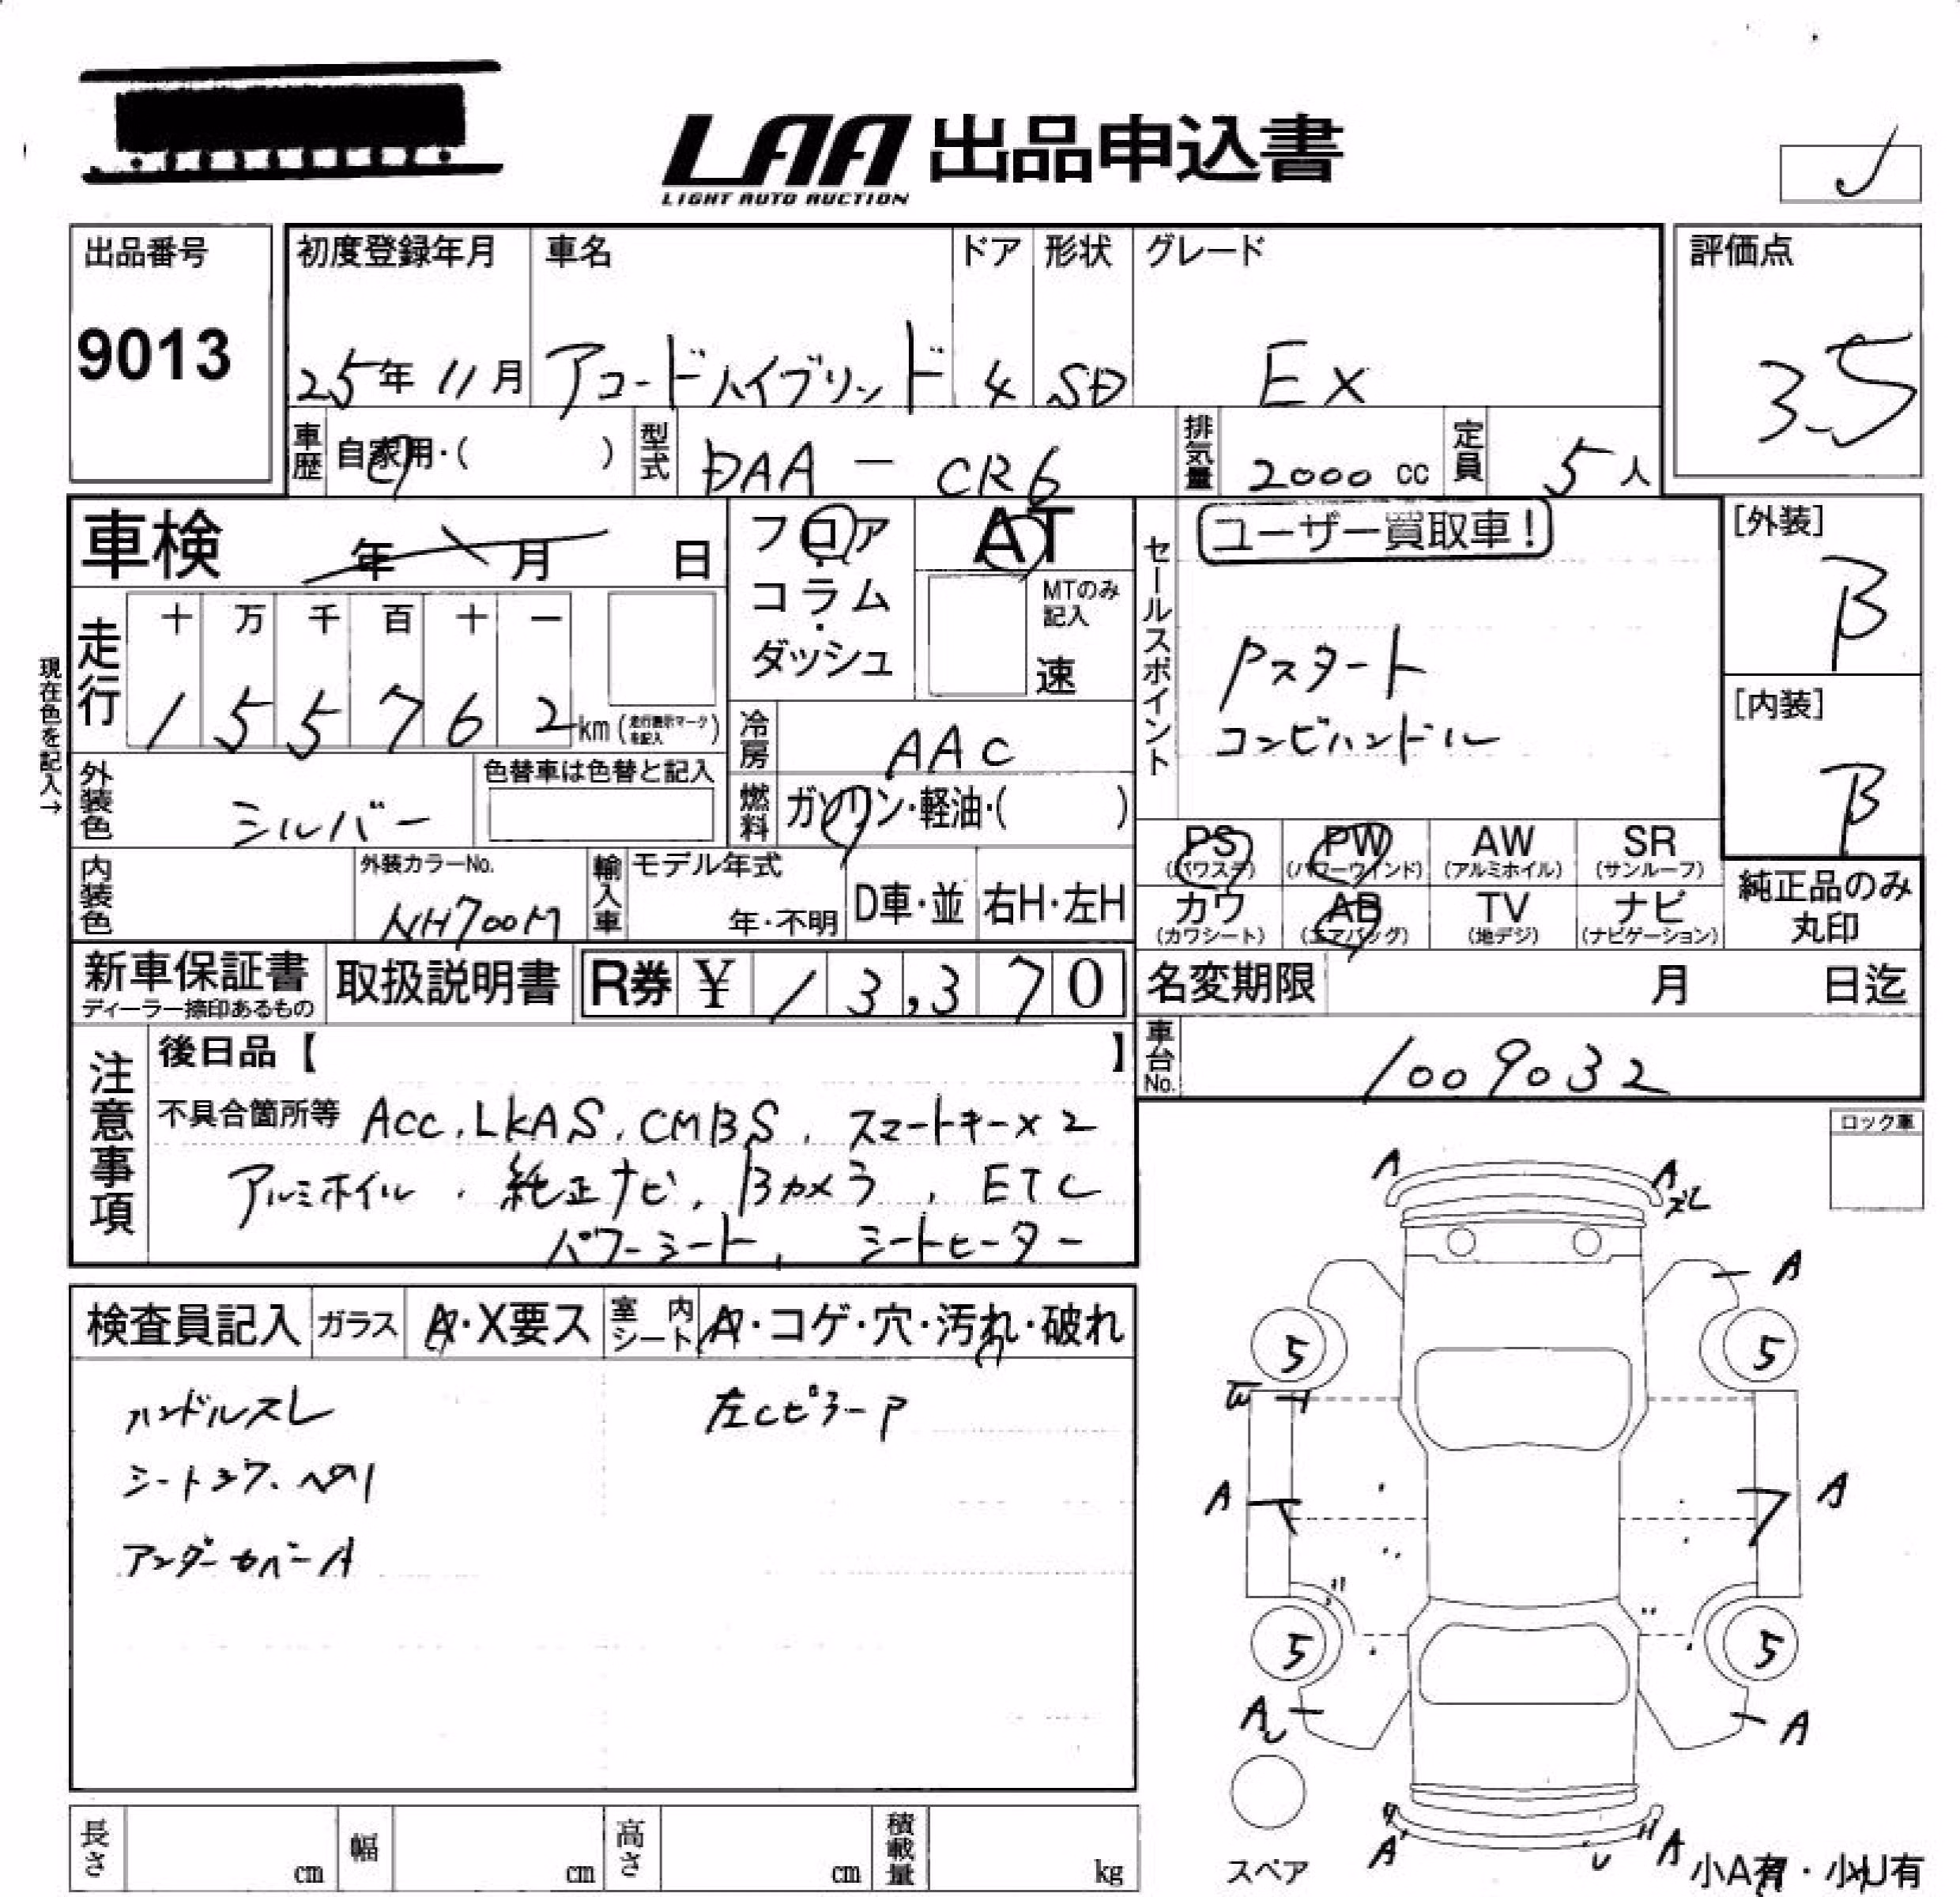 LAA 出品申込書
LIGHT AUTO AUCTION
出品番号
9013
初度登録年月
25年 11月
車名
アコードハイブリッド
ドア
4
形状
SD
グレード
EX
評価点
3.5
車歴 自家用・( )
型式 DAA - CR6
排気量 2000 cc
定員 5人
車検 年 月 日
フロア
コラム
・
ダッシュ
AT
MTのみ記入
速
セールスポイント
ユーザー買取車!
Pスタート
コンビハンドル
[外装]
B
[内装]
B
現在色を記入→
走行
十 万 千 百 十 一
1 5 5 7 6 2 km (走行表示マークを記入)
冷房 AAC
外装色 シルバー
色替車は色替と記入
燃料 ガソリン・軽油・( )
内装色
外装カラーNo.
NH700M
輸入車
モデル年式
年・不明
D車・並
右H・左H
PS (パワステ) PW (パワーウィンド) AW (アルミホイル) SR (サンルーフ)
カワ (カワシート) AB (エアバッグ) TV (地デジ) ナビ (ナビゲーション)
純正品のみ
丸印
新車保証書
ディーラー捺印あるもの
取扱説明書
R券 ¥ 13,370
名変期限 月 日迄
車台No. 1009032
注意事項
後日品【 】
不具合箇所等 ACC, LKAS, CMBS, スマートキー×2
アルミホイル , 純正ナビ, Bカメラ , ETC
パワーシート, シートヒーター
ロック車
検査員記入
ガラス A・X要ス
室内シート A・コゲ・穴・汚れ・破れ
ハンドルスレ
左CピラーP
アンダーカバーA
A
A
スレ
A
5
5
W
A
A
5
5
AU
A
スペア
A
U
A
小A有・小U有
長さ cm
幅 cm
高さ cm
積載量 kg